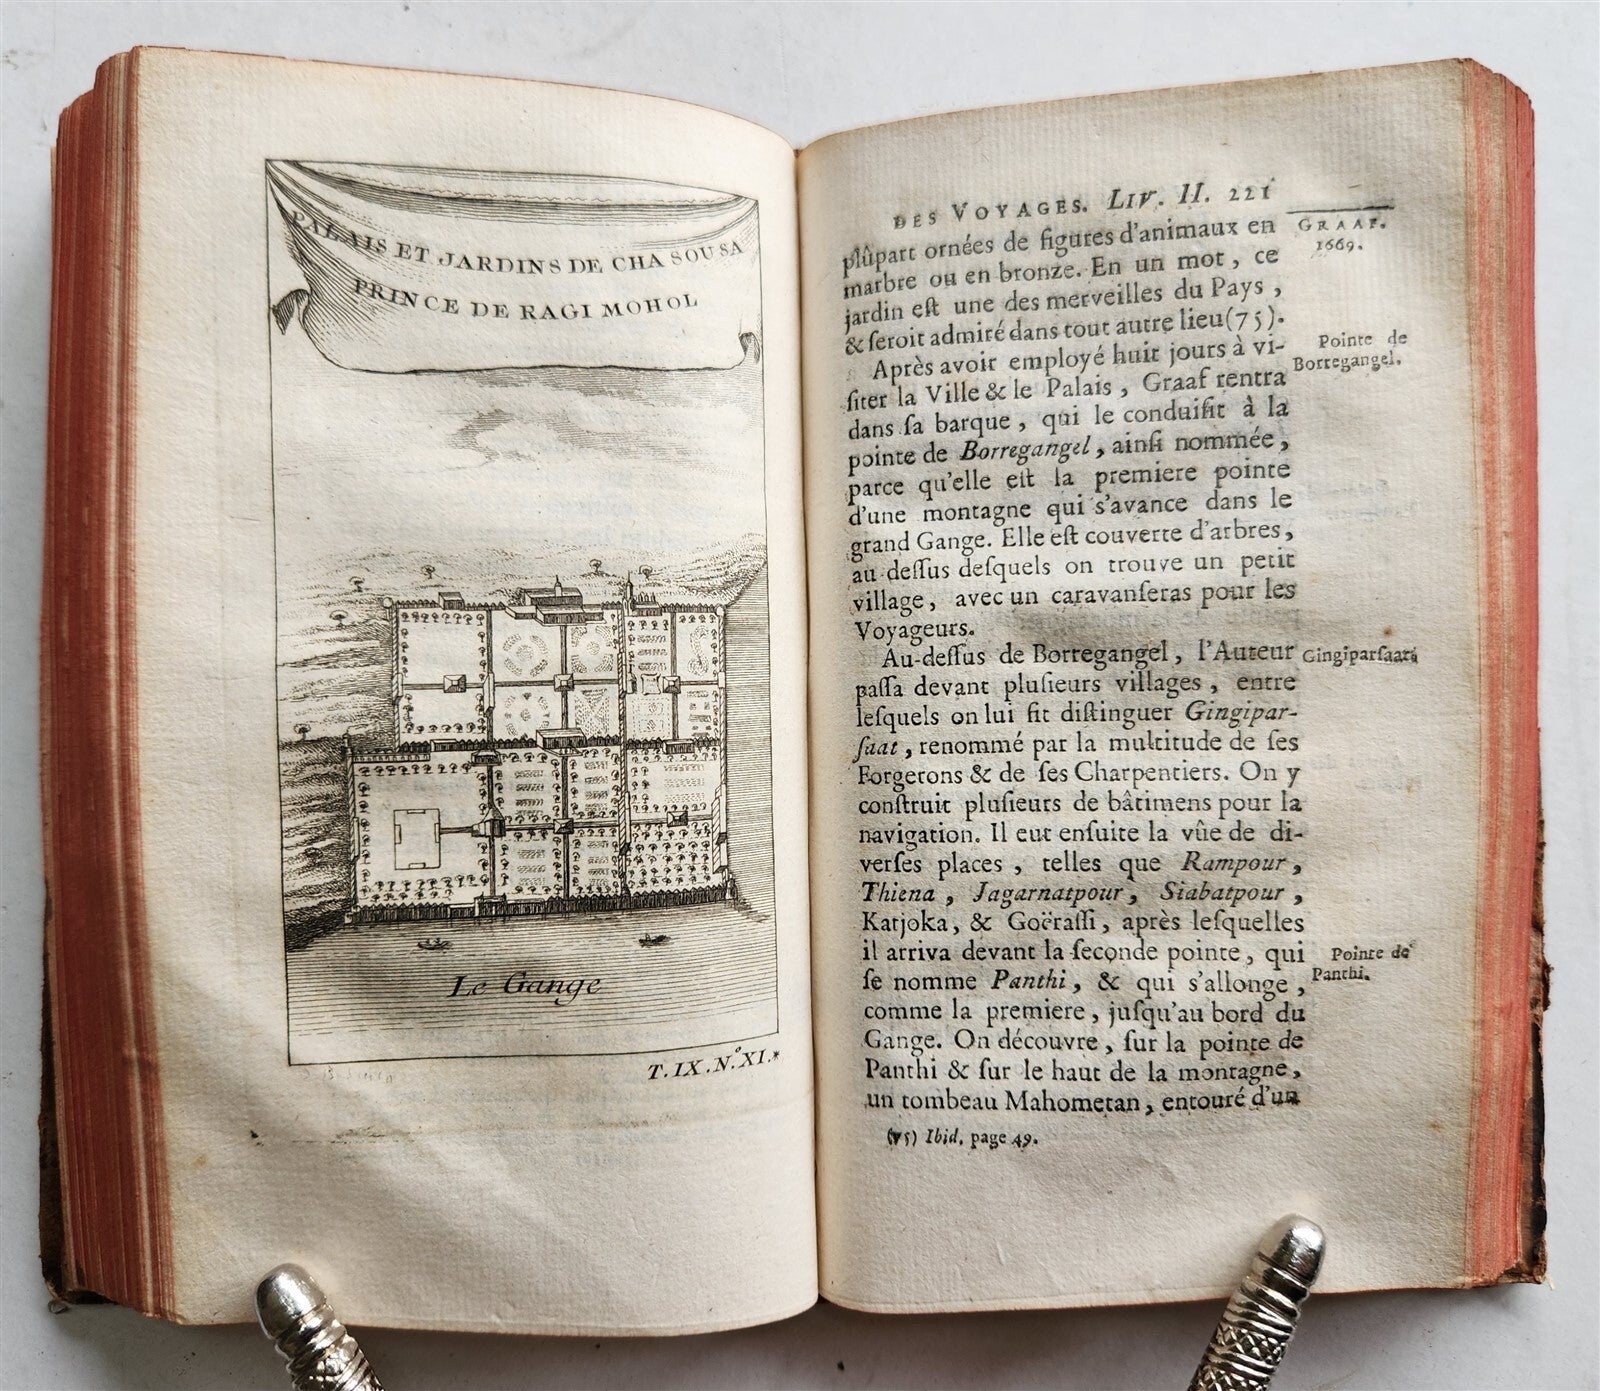 PALAIS ET JARDINS DE CHA SOUSA
PRINCE DE RAGI MOHOL
Le Gange
T.IX.N.º XI.*
DES VOYAGES. LIV. II. 221
GRAAF.
1669.
plûpart ornées de figures d'animaux en
marbre ou en bronze. En un mot, ce
jardin eſt une des merveilles du Pays,
& ſeroit admiré dans tout autre lieu(75).
Après avoir employé huit jours à vi-
ſiter la Ville & le Palais, Graaf rentra
dans ſa barque, qui le conduiſit à la
pointe de Borregangel, ainſi nommée,
parce qu'elle eſt la premiere pointe
d'une montagne qui s'avance dans le
grand Gange. Elle eſt couverte d'arbres,
au deſſus deſquels on trouve un petit
village, avec un caravanſeras pour les
Voyageurs.
Pointe de
Borregangel.
Au-deſſus de Borregangel, l'Auteur
paſſa devant pluſieurs villages, entre
leſquels on lui fit diſtinguer Gingipar-
ſaat, renommé par la multitude de ſes
Forgerons & de ſes Charpentiers. On y
conſtruit pluſieurs de bâtimens pour la
navigation. Il eut enſuite la vûe de di-
verſes places, telles que Rampour,
Thiena, Jagarnatpour, Siabatpour,
Katjoka, & Goëraſſi, après leſquelles
il arriva devant la ſeconde pointe, qui
ſe nomme Panthi, & qui s'allonge,
comme la premiere, juſqu'au bord du
Gange. On découvre, ſur la pointe de
Panthi & ſur le haut de la montagne,
un tombeau Mahometan, entouré d'un
Gingiparſaat.
Pointe de
Panthi.
(75) Ibid. page 49.